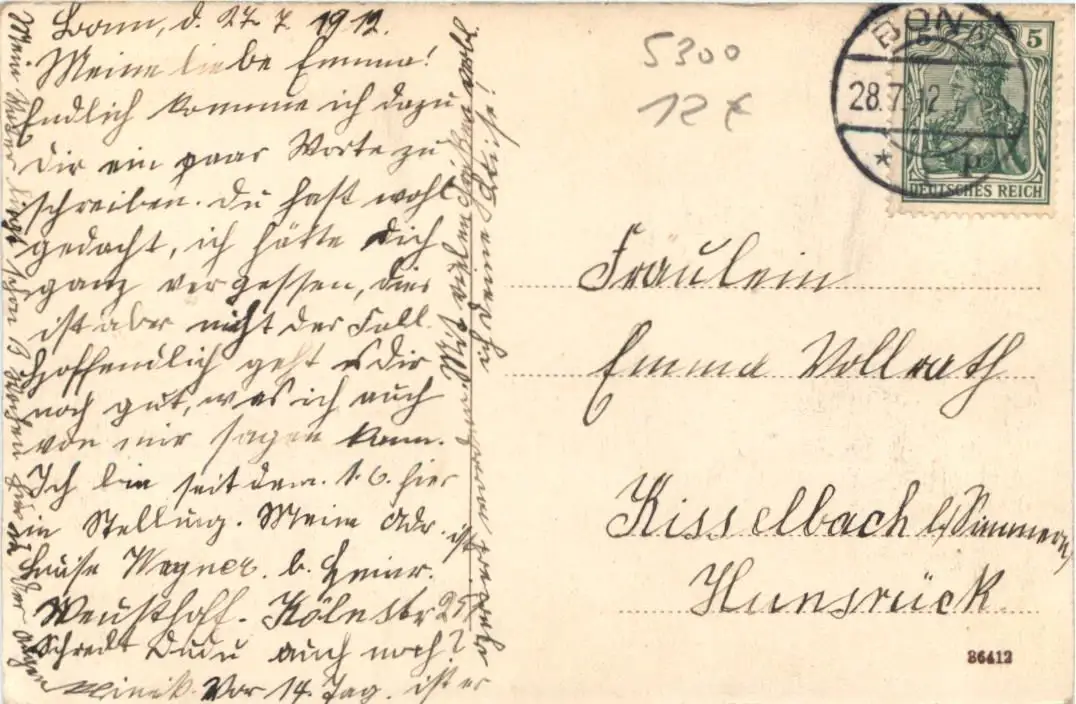 Bonn, d. 27. 7. 1912.
Meine liebe Emma!
Endlich komme ich dazu
Dir ein paar Worte zu
schreiben. Du hast wohl
gedacht, ich hätte Dich
ganz vergessen, dies
ist aber nicht der Fall.
Hoffendlich geht es Dir
noch gut, was ich auch
von mir sagen kann.
Ich bin seit dem 1.6. hier
in Stellung. Meine Adr. ist
Luise Wegner. b. Heinr.
Weusthoff. Kölnstr 25
Schreibt Dudu auch noch?
Vor 14. Tag. ist er
Mein Bruder liegt schon 13 Wochen hier in der Augen
klinik.
5300
12 €
BONN
28.7.12
5
DEUTSCHES REICH
Fräulein
Emma Vollrath
Kisselbach b/Simmern
Hunsrück.
36412